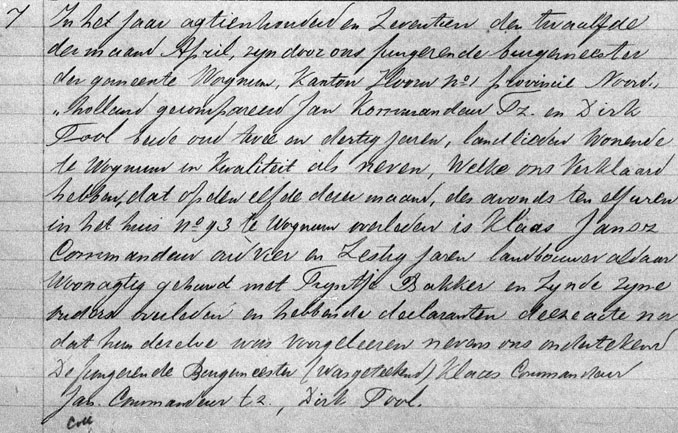 7 In het jaar agtienhonderd en Zeventien den twaalfde
der maand April, zyn door ons fungerende burgemeester
der gemeente Wognum, Kanton Hoorn No 1 provincie Noord„
„holland gecompareerd Jan Kommandeur Pz. en Dirk
Tool beide oud twee en dertig jaren, landlieden Wonende
te Wognum in Kwaliteit als neven, Welke ons Verklaard
hebben, dat op den elfde deser maand, des avonds ten elf uren
in het huis No 93 te Wognum overleden is Klaas Jansz
Commandeur oud vier en Zestig jaren landbouwer aldaar
Woonagtig gehuwd met Tryntje Bakker en Zynde Zyne
ouders overleden en hebbende declaranten deeze acte na
dat hun deselve was voorgeleesen nevens ons ondertekend
De fungerende Burgemeester (was getekend) Klaas Commandeur
Jan Commandeur tz., Dirk Tool.
Coll